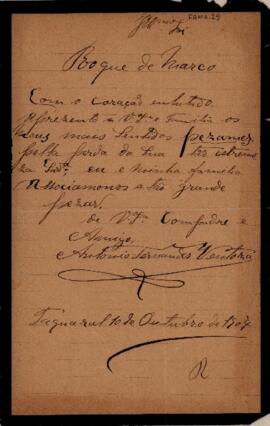 Roque de Marco
Com o coração enlutado
apresento a V. Sª e familia os
meus mais sentidos pezames
pella perda da sua tão estremo
za eu e minha familia
Associamonos a tão grande
pezar.
de V. Sª Compadre e
Amigo
Antonio Fernandes Ventoza
Taguaral 10 de Outubro de 1907
R